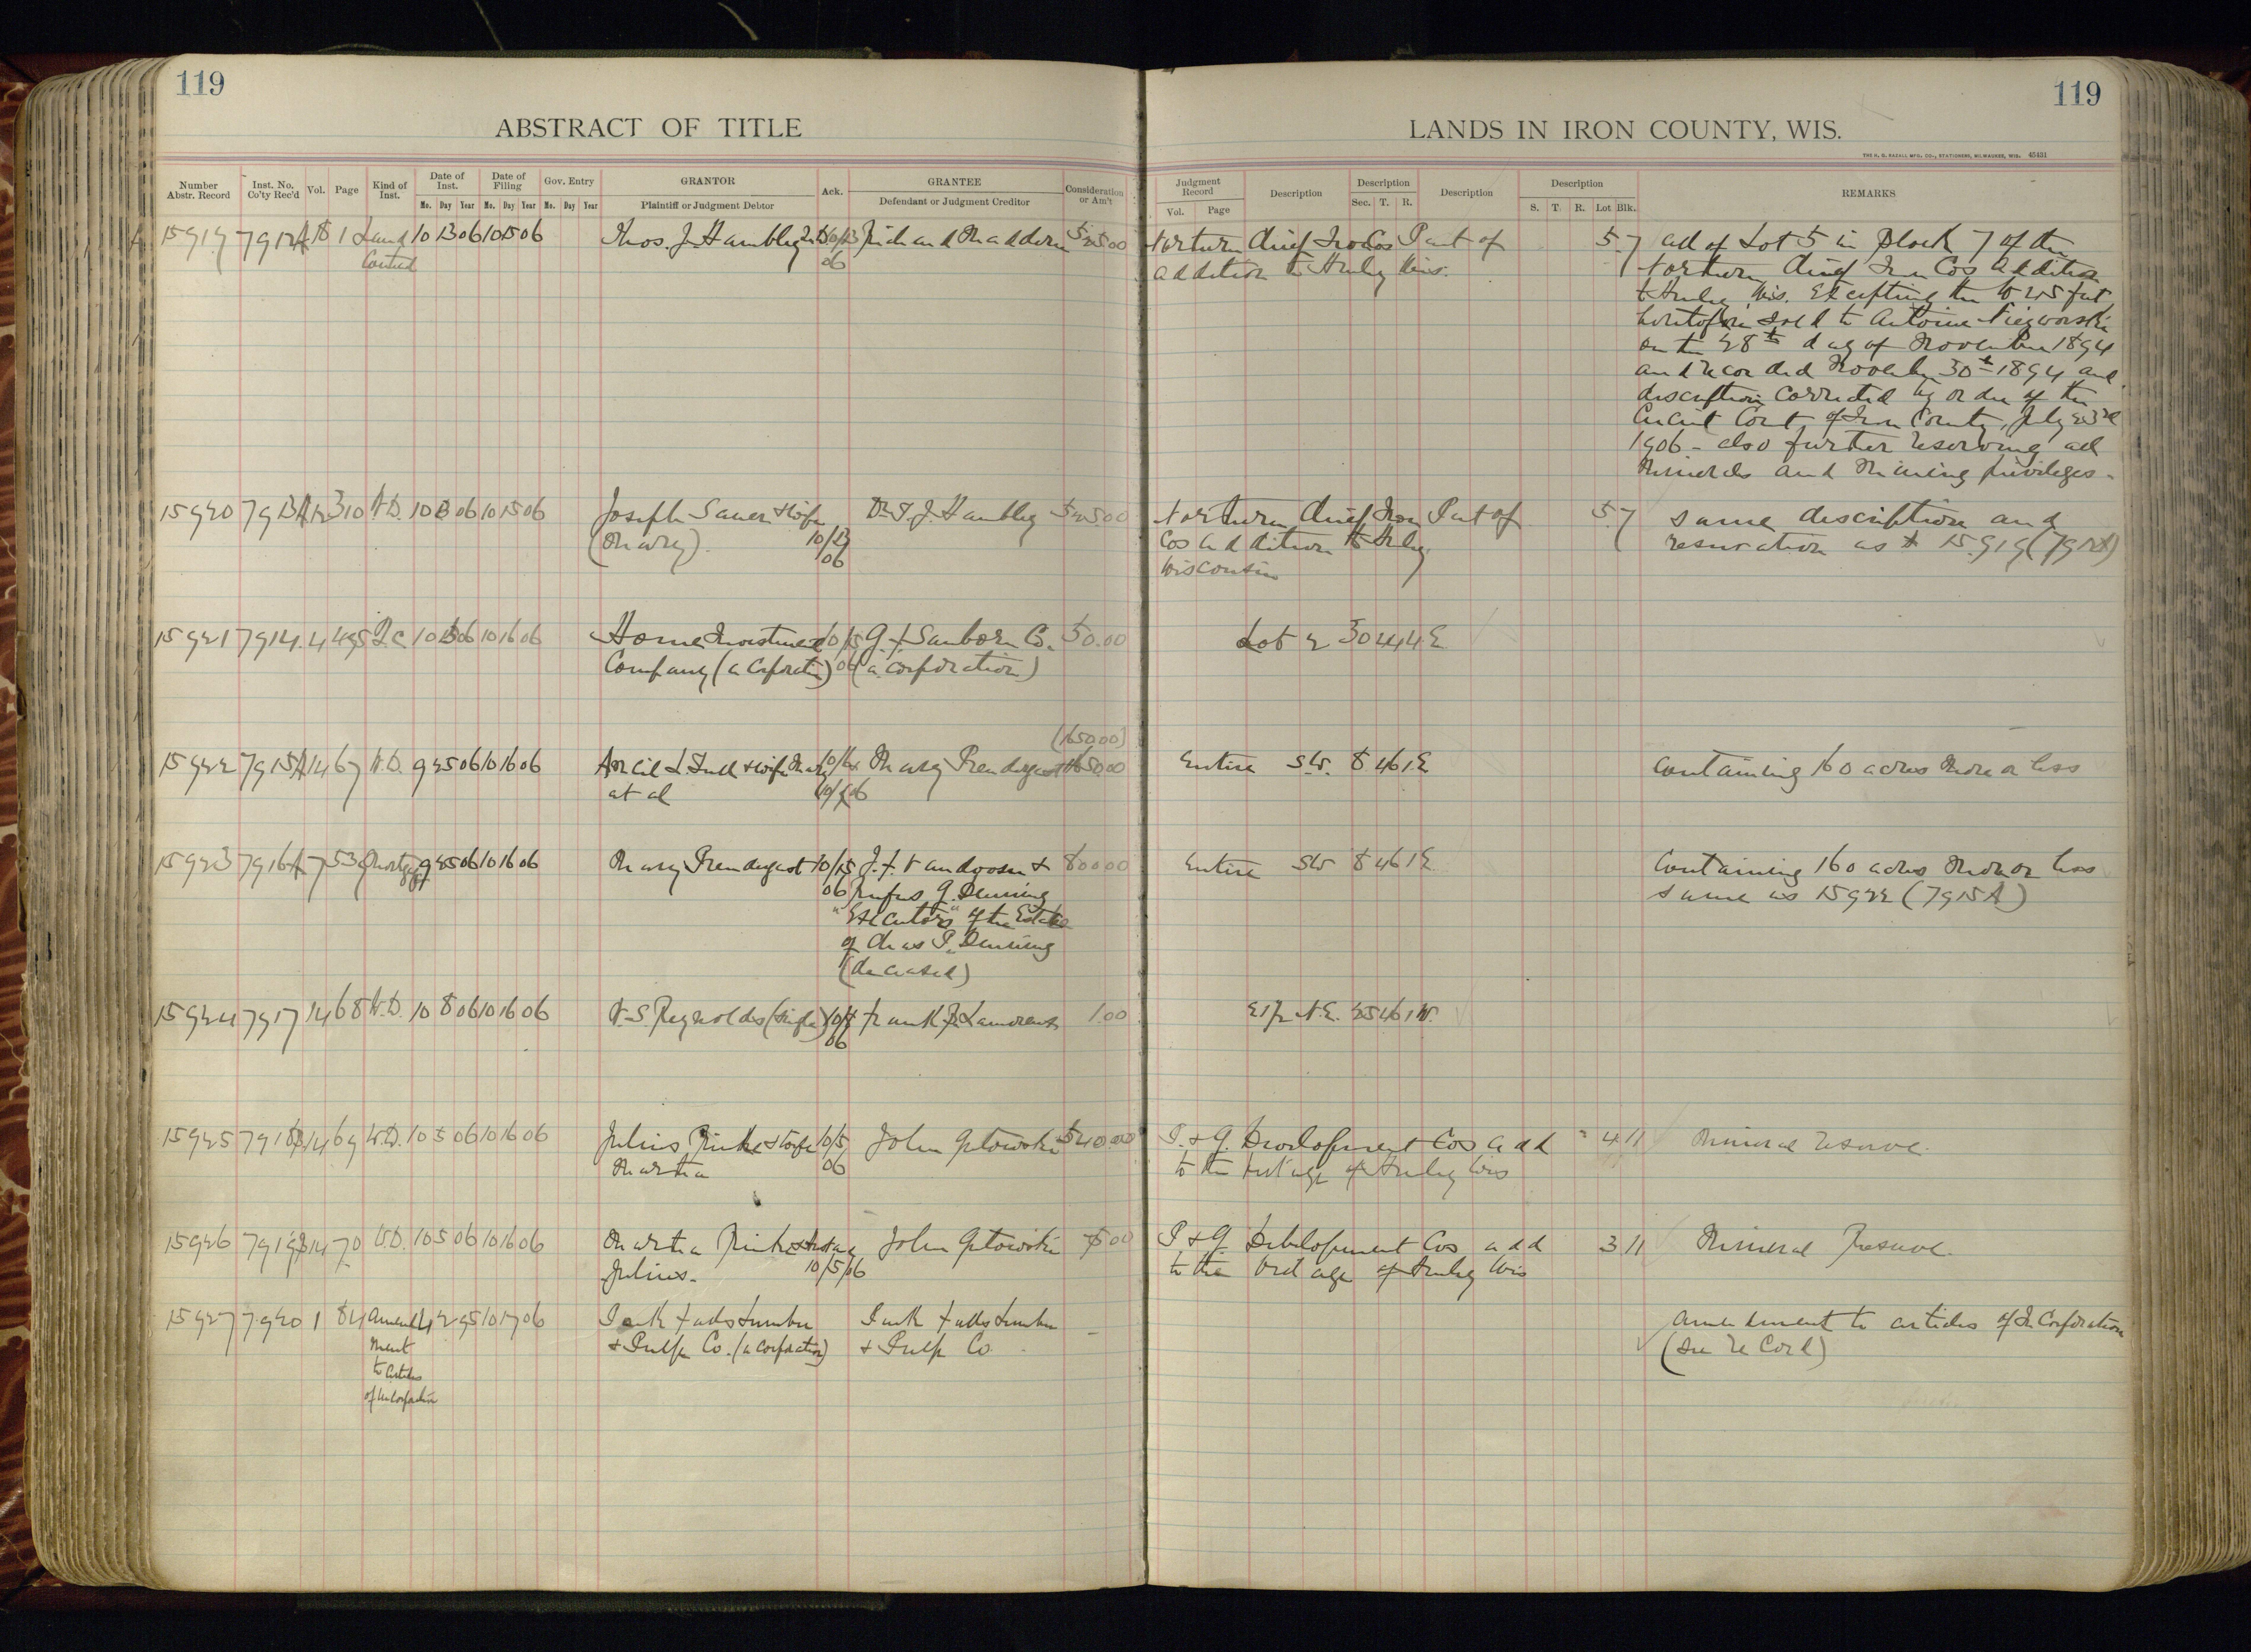 119
119
ABSTRACT OF TITLE
LANDS IN IRON COUNTY, WIS.
THE H. G. RAZALL MFG. CO., STATIONERS, MILWAUKEE, WIS. 45431
Number Abstr. Record Inst. No. Co'ty Rec'd Vol. Page Kind of Inst. Date of Inst. Date of Filing Gov. Entry GRANTOR Ack. GRANTEE Consideration or Am't
Mo. Day Year Mo. Day Year Mo. Day Year Plaintiff or Judgment Debtor Defendant or Judgment Creditor
Judgment Record Description Description Description Description REMARKS
Vol. Page Sec. T. R. S. T. R. Lot Blk.
15919 7912A 8 1 Land 10 13 06 10 15 06 Thos. J. Hambley 10/13 Richard Madden 525.00
Contract 06
Northern Chief Iron Cos Part of 5 7 all of Lot 5 in Block 7 of the
addition to Hurley Wis. Northern Chief Iron Cos Addition
to Hurley Wis. Excepting the W 25 feet
heretofore sold to Antoine
on the 28th day of November 1894
and recorded November 30th 1894 and
description corrected by order of the
Circuit Court of Iron County, July 23rd
1906 - also further reserving all
Minerals and Mining privileges -
15920 7913A 12 310 W.D. 10 13 06 10 15 06 Joseph Sauer & Wife Dr. T. J. Hambley 525.00
(Mary). 10/13
06
Northern Chief Iron Part of 5 7 same description and
Cos addition to Hurley reservation as # 15919 (7912A)
Wisconsin
15921 7914 4 495 Q.C. 10 15 06 10 16 06 Home Investment 10/15 G. F. Sanborn Co. 50.00
Company (a Corporation) 06 (a corporation)
Lot 2 30 44 4 E
(1650.00)
15922 7915A 14 67 W.D. 9 25 06 10 16 06 & wife Mary Mary Prendergast 1650.00
et al 06
Entire S.W. 8 46 1 E Containing 160 acres More or less
15923 7916A 7 539 Mortgage 9 25 06 10 16 06 Mary Prendergast 10/15 & 800.00
06 Rufus G. Deming
"Executors" of the Estate
of Chas P. Deming
(deceased)
Entire SW 8 46 1 E Containing 160 acres More or less
same as 15922 (7915A)
15924 7917 14 68 W.D. 10 8 06 10 16 06 W. S. Reynolds (single) 10/8 Frank 1.00
06
E 1/2 N.E. 25 46 1 W.
15925 7918 14 69 W.D. 10 5 06 10 16 06 Julius Rinke & Wife 10/5 John Gutowski 540.00
Martha 06
P. & G. Development Cos add 4 11 Mineral reserve.
to the Village of Hurley Wis
15926 7919 14 70 W.D. 10 5 06 10 16 06 Martha Rinke John Gutowski
Julius. 10/5/06
P & G. Development Cos add 3 11 Mineral Reserve.
to the Village of Hurley Wis
15927 7920 1 84 Amend 10 17 06 Park Falls Lumber Park Falls Lumber -
ment & Pulp Co. (a corporation) & Pulp Co.
to Articles
of Incorporation
Amendment to articles of InCorporation
(see record)